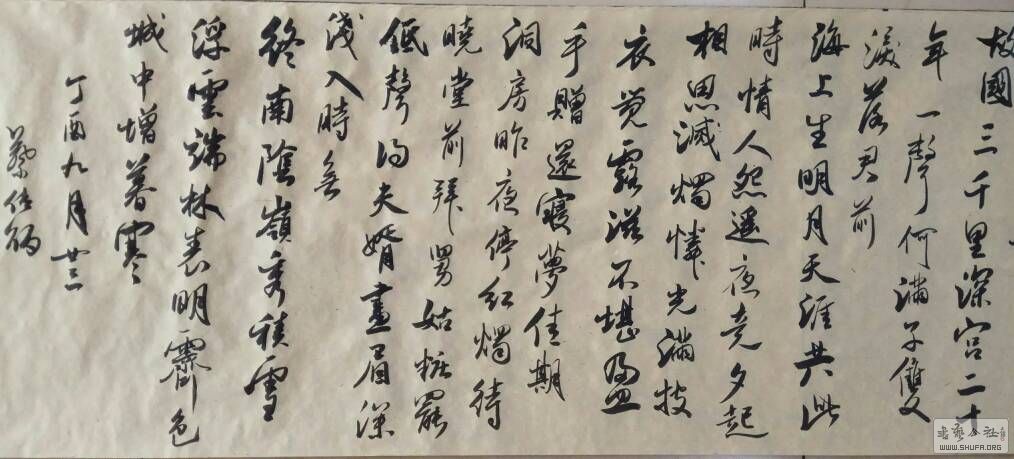 故國三千里深宮二十
年一聲何滿子雙
淚落君前
海上生明月天涯共此
時情人怨遥夜竟夕起
相思滅燭憐光滿披
衣覺露滋不堪盈
手贈還寢夢佳期
洞房昨夜停紅燭待
曉堂前拜舅姑粧罷
低聲問夫婿畫眉深
淺入時無
終南陰嶺秀積雪
浮雲端林表明霽色
城中增暮寒
丁酉九月廿三
蔡仕炳
書藝公社
WWW.SHUFA.ORG